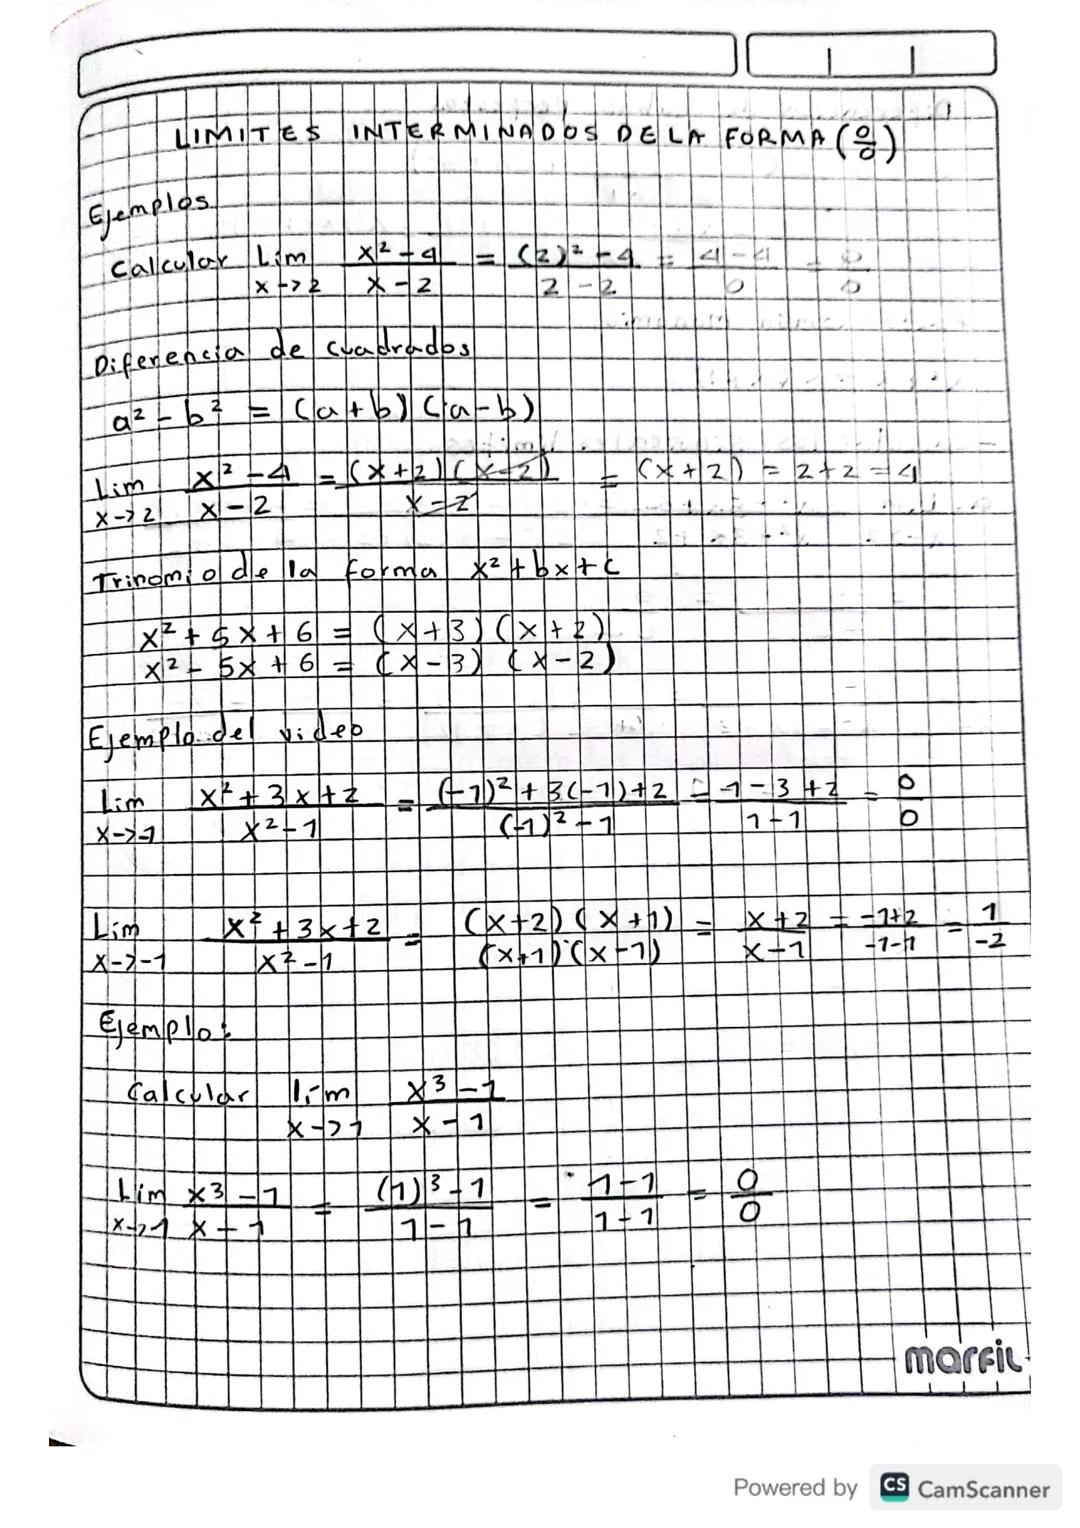 LIMITES INTERMINADOS DE LA FORMA (0/0)
Ejemplos
Calcular Lim x->2 x² - 4 / x - 2 = (2)² - 4 / 2 - 2 = 4 - 4 / 0 = 0 / 0
Diferencia de cuadrados
a² - b² = (a+b) (a-b)
Lim x->2 x² - 4 / x - 2 = (x+2) (x-2) / x - 2 = (x+2) = 2+2 = 4
Trinomio de la forma x² + bx + c
x² + 5x + 6 = (x+3) (x+2)
x² - 5x + 6 = (x-3) (x-2)
Ejemplo del video
Lim x->-1 x² + 3x + 2 / x² - 1 = (-1)² + 3(-1) + 2 / (-1)² - 1 = 1 - 3 + 2 / 1 - 1 = 0 / 0
Lim x->-1 x² + 3x + 2 / x² - 1 = (x+2) (x+1) / (x+1) (x-1) = x+2 / x-1 = -1+2 / -1-1 = 1 / -2
Ejemplo:
Calcular lím x->1 x³ - 1 / x - 1
Lim x->1 x³ - 1 / x - 1 = (1)³ - 1 / 1 - 1 = 1 - 1 / 1 - 1 = 0 / 0
marfil
Powered by CS CamScanner